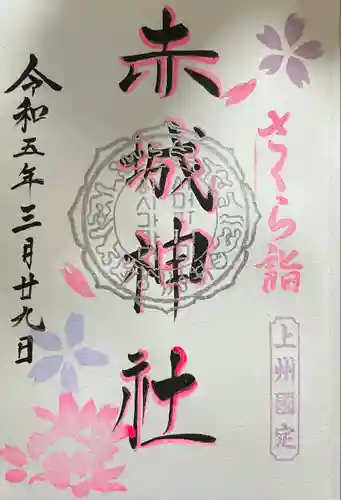 さくら詣
上州國定
赤城神社
令和五年三月廿九日